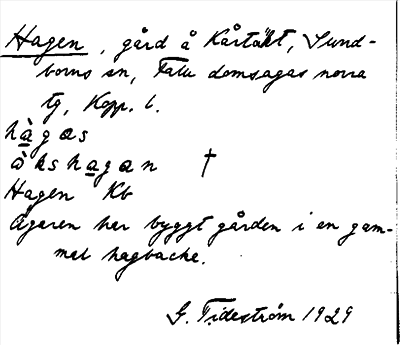 Hagen, gård å Kårtäkt, Sund-
borns sn, Falu domsagas norra
tg, Kopp. l.
hàgas
àkshagan †
Hagen Kb
Ägaren har byggt gården i en gam-
mal hagbacke.
G. Tideström 1929